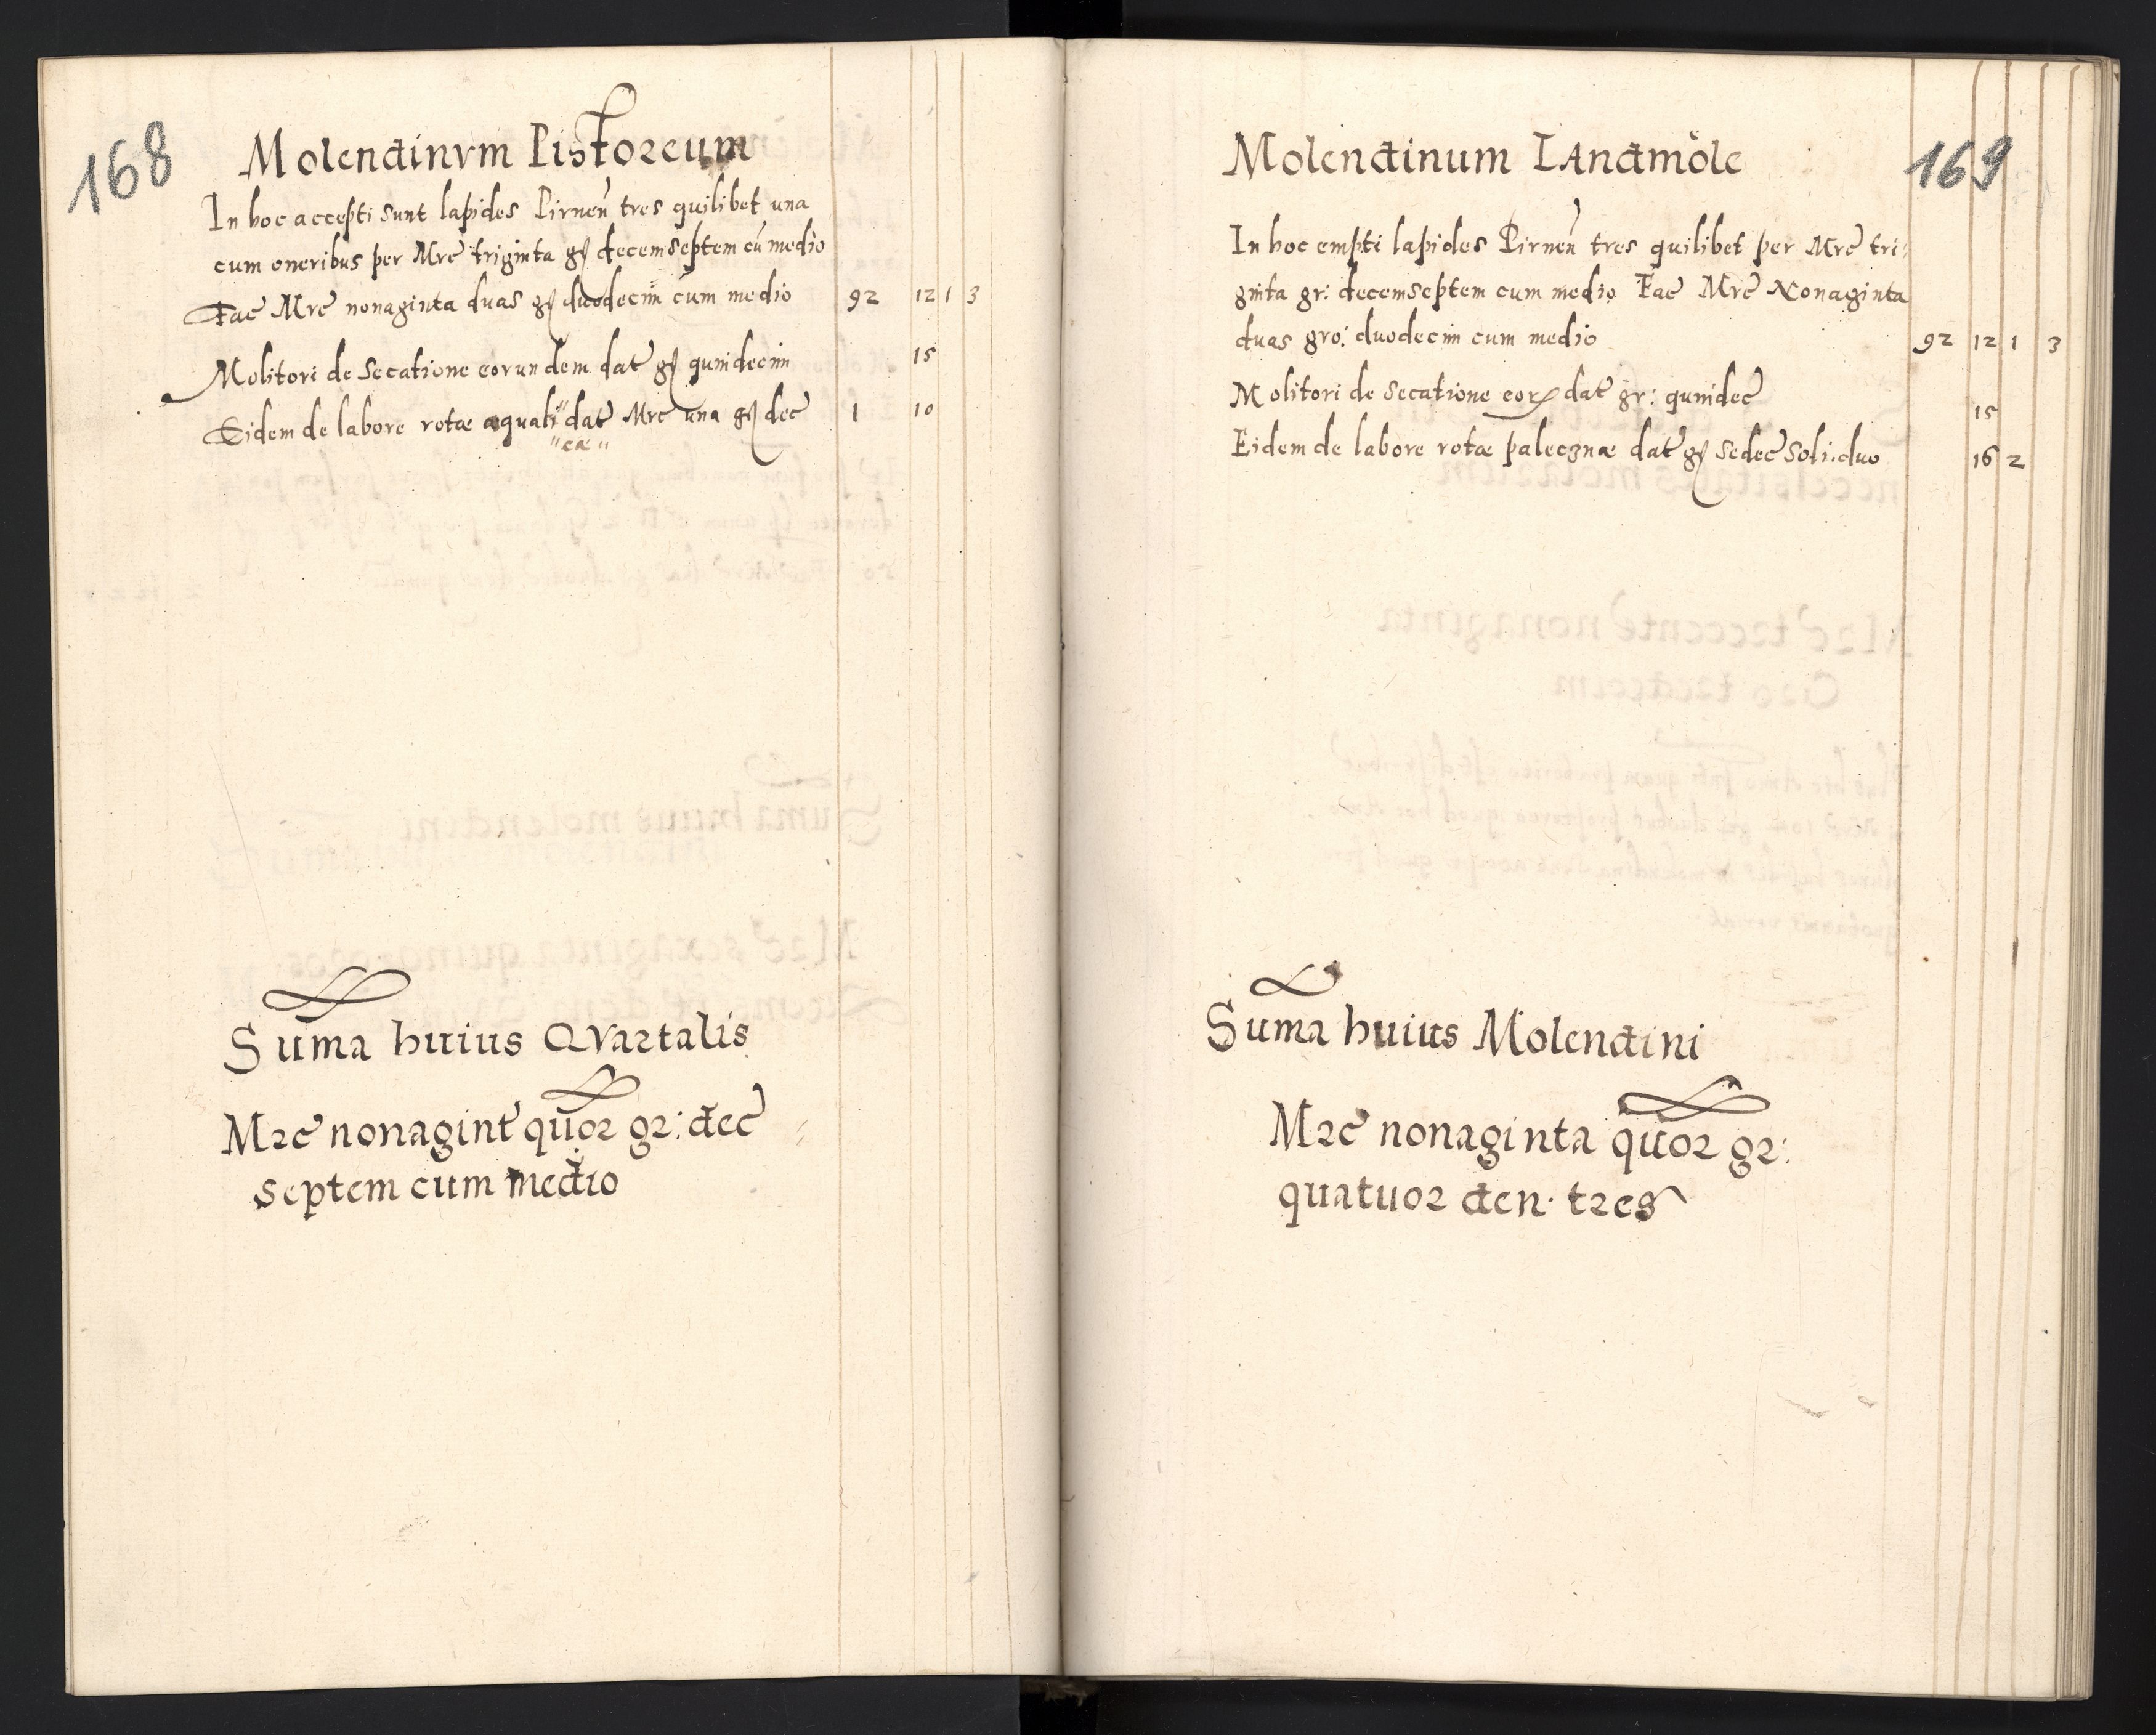 168
Molendinvm Pistoreum
In hoc accepti sunt lapides Pirnen̄ tres quilibet una
cum oneribus per Mrc triginta gr decemseptem cū medio
Fac Mrc nonaginta duas gr duodecim cum medio 92 12 1 3
Molitori de secatione eorundem dat gr quindecim 15
Eidem de labore rotæ aquati dat Mrc una gr dec 1 10
"cæ"
Suma huius Qvartalis
Mrc nonagint quor gr: dec
septem cum medio
169
Molendinum Landmöle
In hoc empti lapides Pirnen̄ tres quilibet per Mrc tri:
ginta gr: decemseptem cum medio Fac Mrc Nonaginta
duas gro: duodecim cum medio 92 12 1 3
Molitori de secatione eor dat gr: quindec 15
Eidem de labore rotæ palecznæ dat gr sedec soli: duo 16 2
Suma huius Molendini
Mrc nonaginta quor gr:
quatuor den: tres